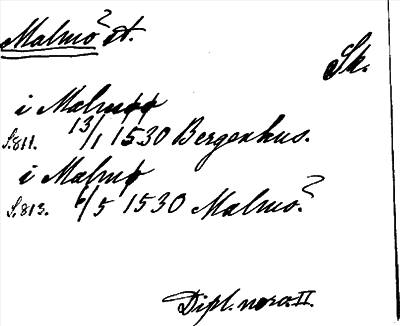 Malmö st.
Sk.
i Malmøø
S. 811. 13/1 1530 Bergenhus.
i Malmø
S. 813. 6/5 1530 Malmö.
Dipl. norv. II.